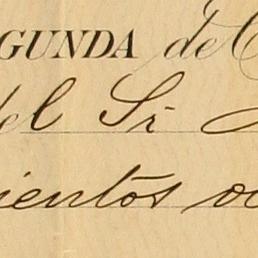 GUNDA de C
del Sr
ientos oc